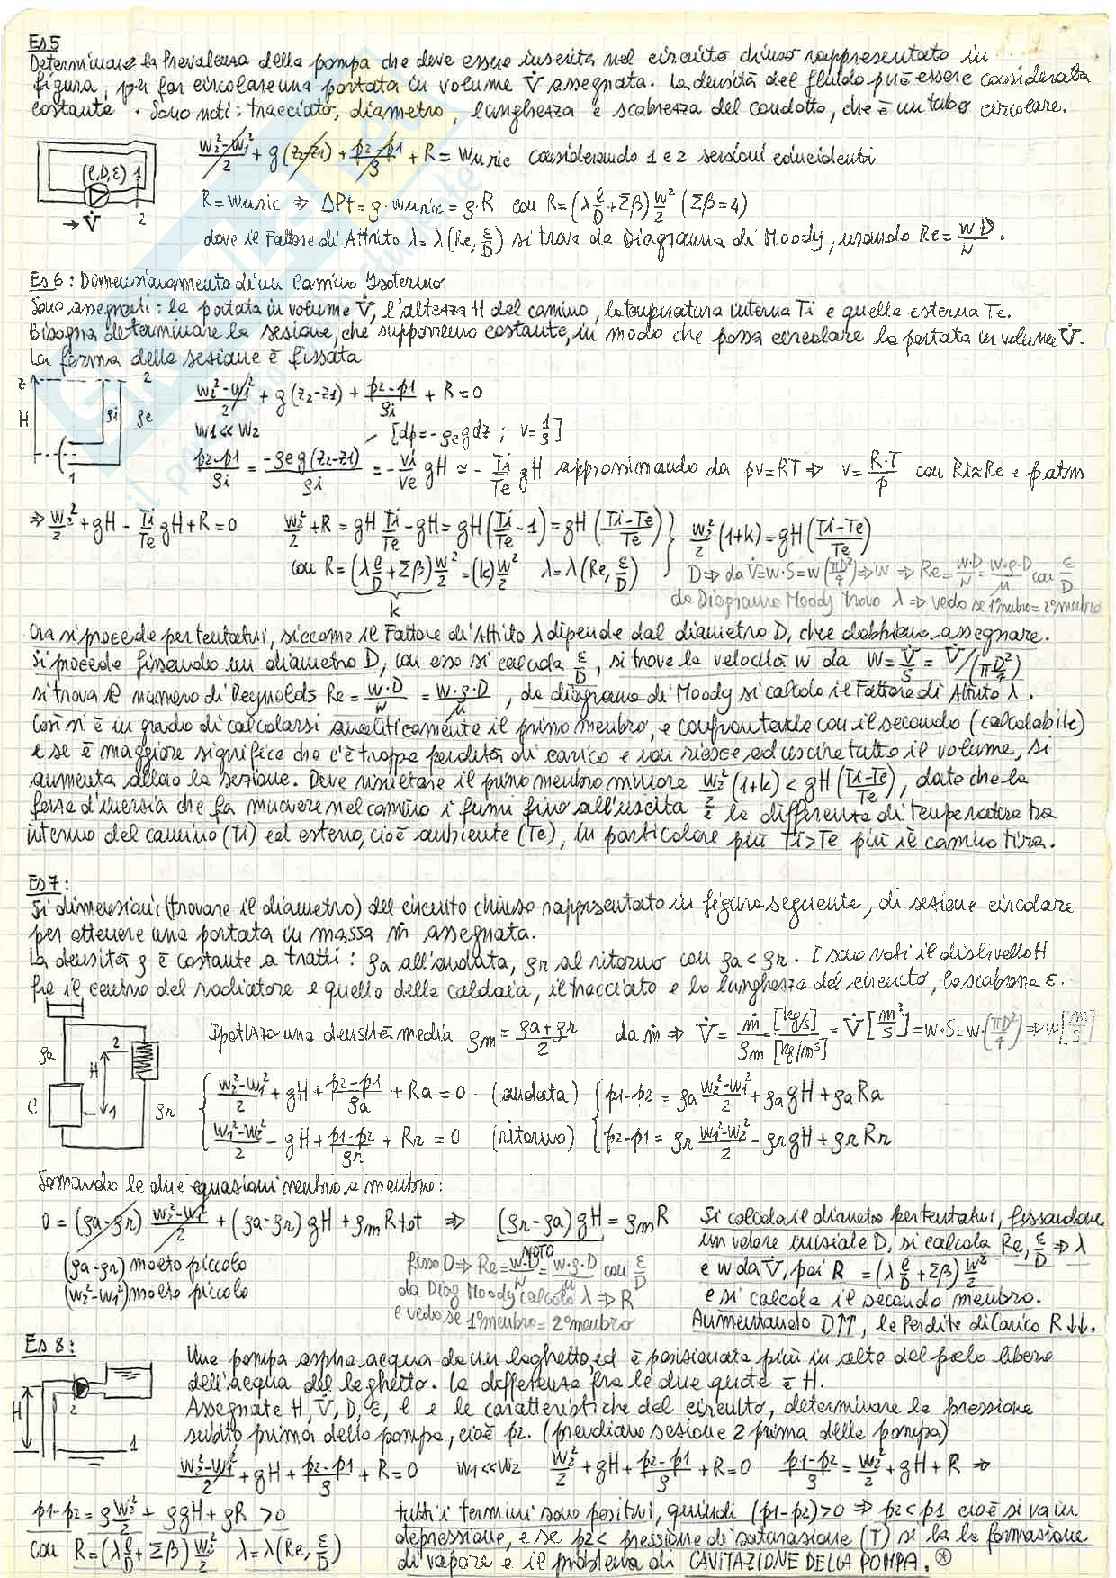 Es 5
Determinare la Prevalenza della pompa che deve essere inserita nel circuito chiuso rappresentato in
figura, per far circolare una portata in volume V̇ assegnata. La densità del fluido può essere considerata
costante. Sono noti: tracciato, diametro, lunghezza e scabrezza del condotto, che è un tubo circolare.
(w2²-w1²)/2 + g(z2-z1) + (p2-p1)/ρ + R = wunic considerando 1 e 2 sezioni coincidenti
(l,D,ε) 1
→ V̇ 2
R = wunic ⇒ ΔPt = ρ·wunic = ρ·R con R = (λ l/D + Σβ) w²/2 (Σβ=4)
dove il Fattore di Attrito λ = λ(Re, ε/D) si trova da Diagramma di Moody, usando Re = wD/ν.
Es 6: Dimensionamento di un Camino Isotermo
Sono assegnati: la portata in volume V̇, l'altezza H del camino, la temperatura interna Ti e quella esterna Te.
Bisogna determinare la sezione, che supponiamo costante, in modo che possa circolare la portata in volume V̇.
La forma della sezione è fissata
z 2
H ρi ρe
1
(w2²-w1²)/2 + g(z2-z1) + (p2-p1)/ρi + R = 0
w1 << w2 [dp = -ρe g dz ; v = 1/ρ]
(p2-p1)/ρi = -ρe g(z2-z1)/ρi = - vi/ve gH ≃ - Ti/Te gH approssimando da pv=RT ⇒ v = R·T/p con Ri≃Re e patm
⇒ w2²/2 + gH - Ti/Te gH + R = 0 w2²/2 + R = gH Ti/Te - gH = gH(Ti/Te - 1) = gH((Ti-Te)/Te) } w2²/2 (1+k) = gH((Ti-Te)/Te)
con R = (λ l/D + Σβ) w²/2 = (k) w²/2 λ = λ(Re, ε/D)
k
D ⇒ da V̇ = w·S = w(πD²/4) ⇒ w ⇒ Re = w·D/ν = w·ρ·D/μ con ε/D
da Diagramma Moody trovo λ ⇒ vedo se 1°membro = 2°membro
Ora si procede per tentativi, siccome il Fattore di Attito λ dipende dal diametro D, che dobbiamo assegnare.
Si procede fissando un diametro D, con esso si calcola ε/D, si trova la velocità w da w = V̇/S = V̇/(πD²/4)
si trova il numero di Reynolds Re = w·D/ν = w·ρ·D/μ, da diagramma di Moody si calcolo il Fattore di Attrito λ.
Così si è in grado di calcolarsi analiticamente il primo membro, e confrontarlo con il secondo (calcolabile)
e se è maggiore significa che c'è troppa perdita di carico e non riesce ad uscire tutto il volume, si
aumenta allora la sezione. Deve risultare il primo membro minore w2²/2 (1+k) < gH((Ti-Te)/Te), dato che la
forza d'inerzia che fa muovere nel camino i fumi fino all'uscita è la differenza di temperatura tra
interno del camino (Ti) ed esterno, cioè ambiente (Te), in particolare più Ti>Te più il camino tira.
Es 7:
Si dimensioni (trovare il diametro) del circuito chiuso rappresentato in figura seguente, di sezione circolare
per ottenere una portata in massa ṁ assegnata.
La densità ρ è costante a tratti: ρa all'andata, ρr al ritorno con ρa < ρr. I sono noti il dislivello H
fra il centro del radiatore e quello della caldaia, il tracciato e la lunghezza del circuito, la scabrezza ε.
ρa 2 H C 1 ρr
Ipotizzo una densità media ρm = (ρa+ρr)/2 da ṁ ⇒ V̇ = ṁ/ρm [kg/s]/[kg/m³] = V̇ [m³/s] = w·S = w·(πD²/4) ⇒ w [m/s]
{ (w2²-w1²)/2 + gH + (p2-p1)/ρa + Ra = 0 (andata) { p1-p2 = ρa (w2²-w1²)/2 + ρa gH + ρa Ra
(w1²-w2²)/2 - gH + (p1-p2)/ρr + Rr = 0 (ritorno) { p2-p1 = ρr (w1²-w2²)/2 - ρr gH + ρr Rr
Sommando le due equazioni membro a membro:
0 = (ρa-ρr) (w2²-w1²)/2 + (ρa-ρr) gH + ρm Rtot ⇒ (ρr-ρa) gH = ρm R
NOTO
(ρa-ρr) molto piccolo
(w2²-w1²) molto piccolo
fisso D ⇒ Re = w·D/ν = w·ρ·D/μ con ε/D
da Diag Moody calcolo λ ⇒ R
e vedo se 1°membro = 2°membro
Si calcola il diametro per tentativi, fissandone
un valore iniziale D, si calcola Re, ε/D ⇒ λ
e w da V̇, poi R = (λ l/D + Σβ) w²/2
e si calcola il secondo membro.
Aumentando D↑↑, le Perdite di Carico R↓↓.
Es 8:
Una pompa aspira acqua da un laghetto, ed è posizionata più in alto del pelo libero
dell'acqua del laghetto. La differenza fra le due quote è H.
Assegnate H, V̇, D, ε, l e le caratteristiche del circuito, determinare la pressione
subito prima della pompa, cioè p2. (prendiamo sezione 2 prima della pompa)
H 2 1
(w2²-w1²)/2 + gH + (p2-p1)/ρ + R = 0 w1<<w2 w2²/2 + gH + (p2-p1)/ρ + R = 0 (p1-p2)/ρ = w2²/2 + gH + R ⇒
p1-p2 = ρ w2²/2 + ρgH + ρR > 0
con R = (λ l/D + Σβ) w2²/2 λ = λ(Re, ε/D)
tutti i termini sono positivi, quindi (p1-p2)>0 ⇒ p2<p1 cioè si va in
depressione, e se p2 < pressione di saturazione (T) si ha la formazione
di vapore e il problema di CAVITAZIONE DELLA POMPA. ⊛